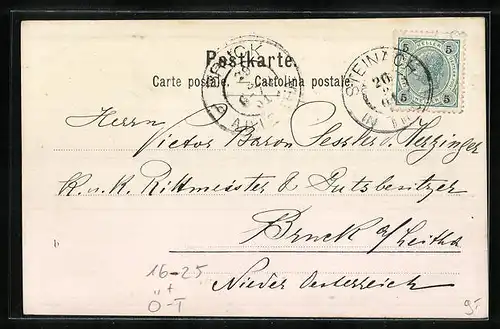 Postkarte.
Carte postale. Cartolina postale.
BRUCK
STEINACH
IN TIROL
5 HELLER 5
5 5
Herrn
Victor Baron Sessler v. Herzinger
K. u. K. Rittmeister & Gutsbesitzer
Bruck a/Leitha
Nieder Oesterreich
16-25
Ö-T